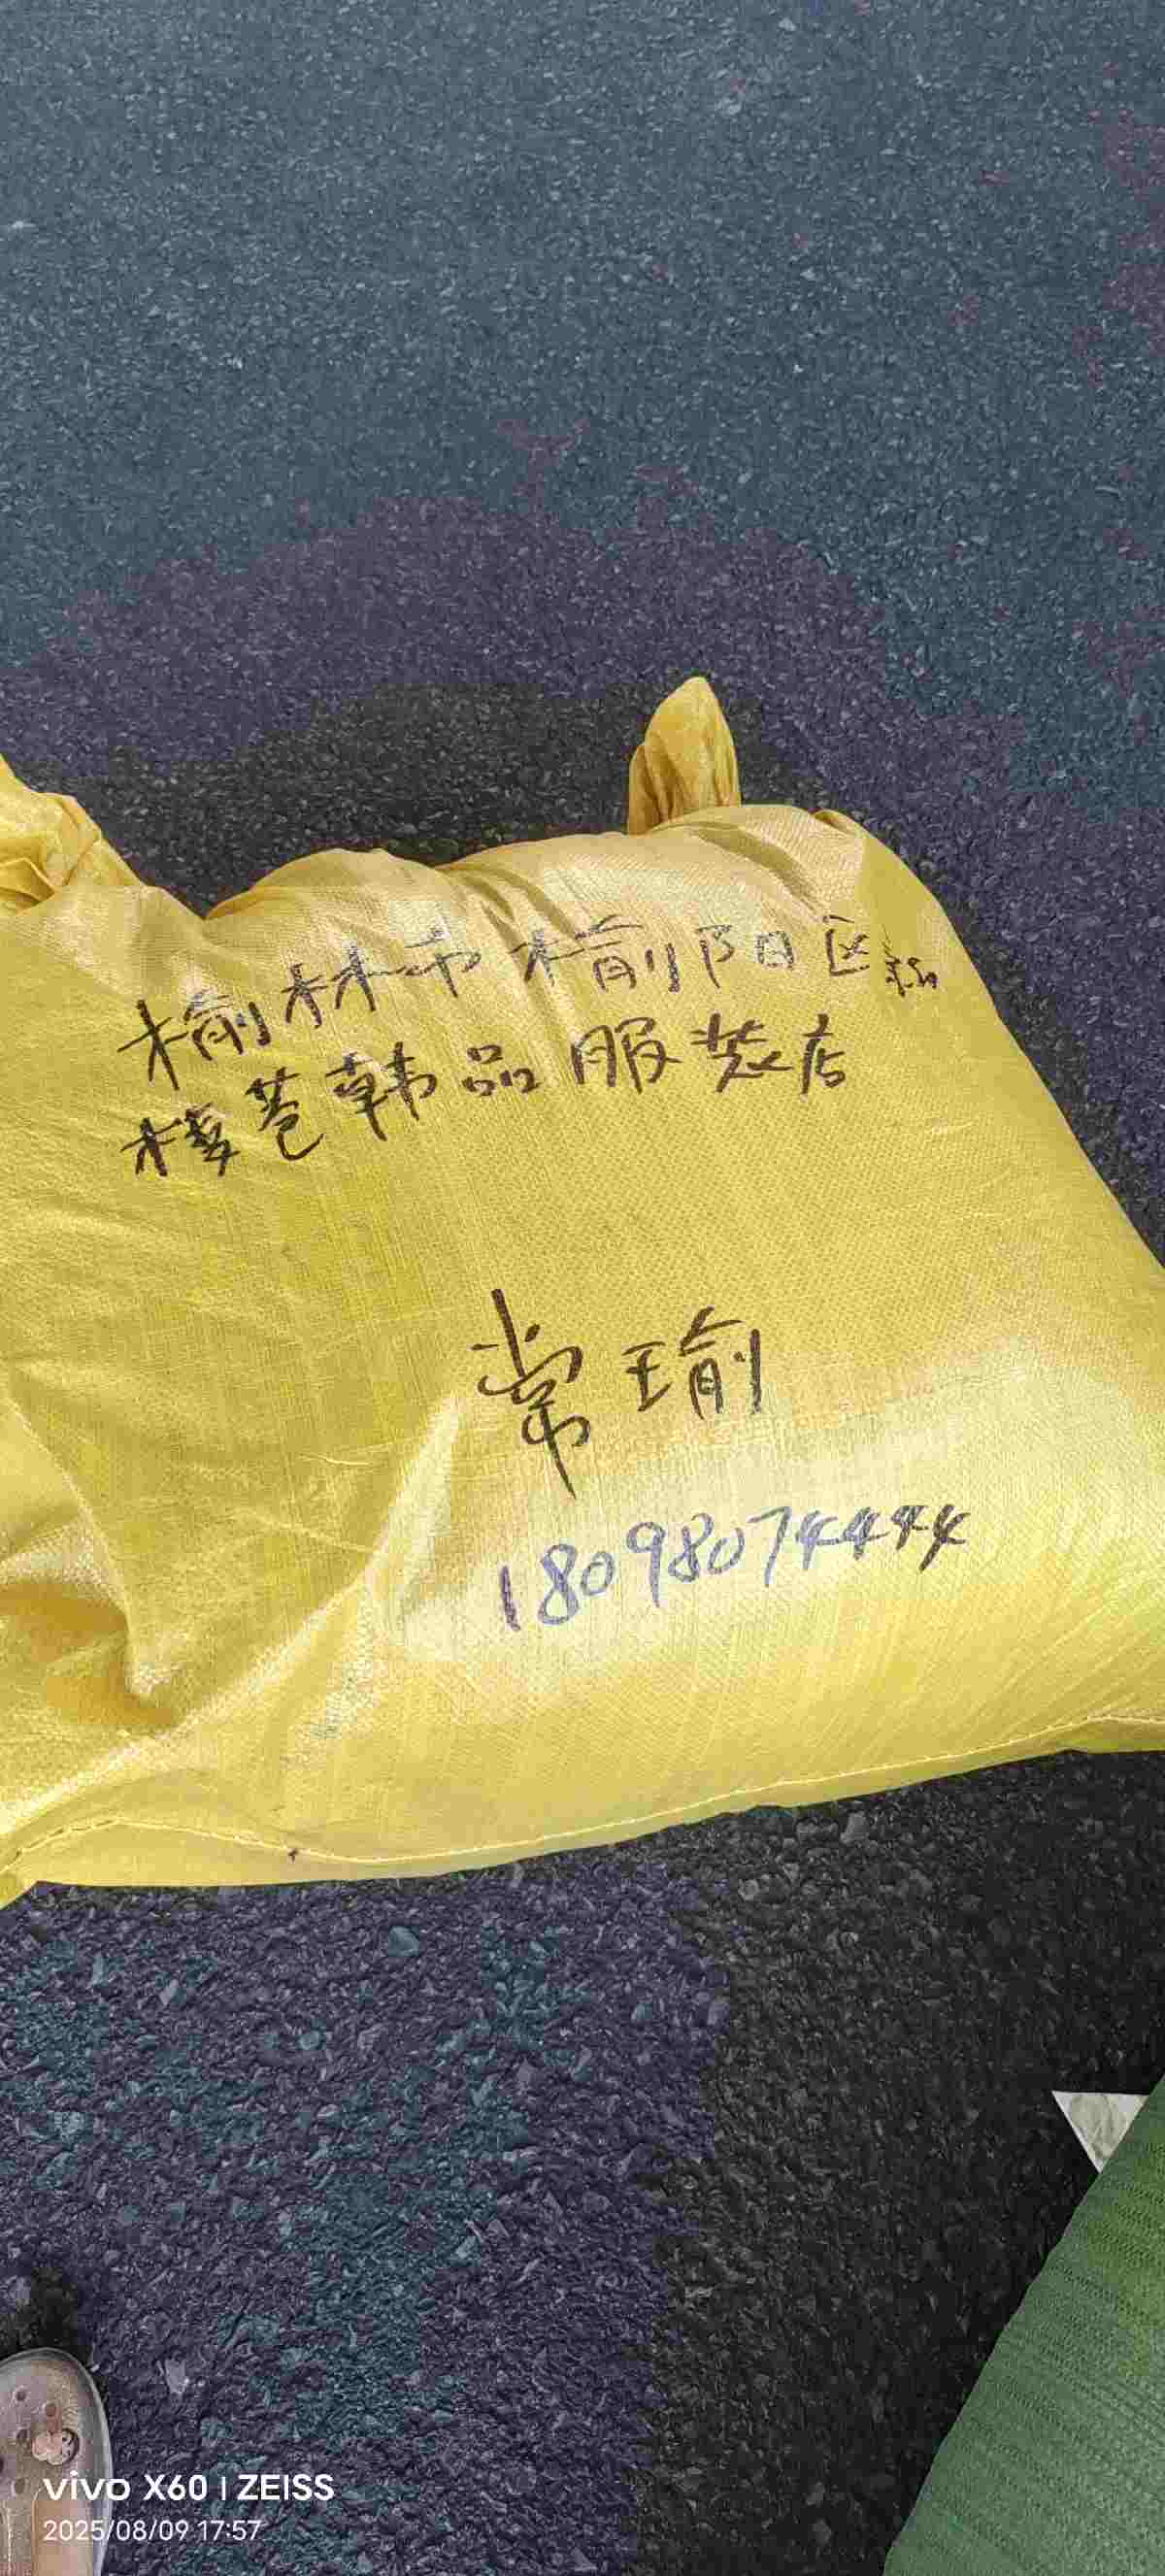 榆林市榆阳区
楼巷韩品服装店
常瑜
18098074444
vivo X60 | ZEISS
2025/08/09 17:57